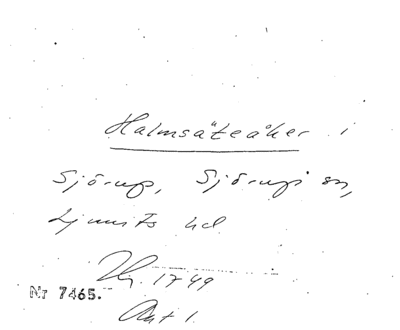 Halmsäteåker i
Sjörup, Sjörups sn,
Ljunits hd
1749
Nr 7465.
Akt 1.